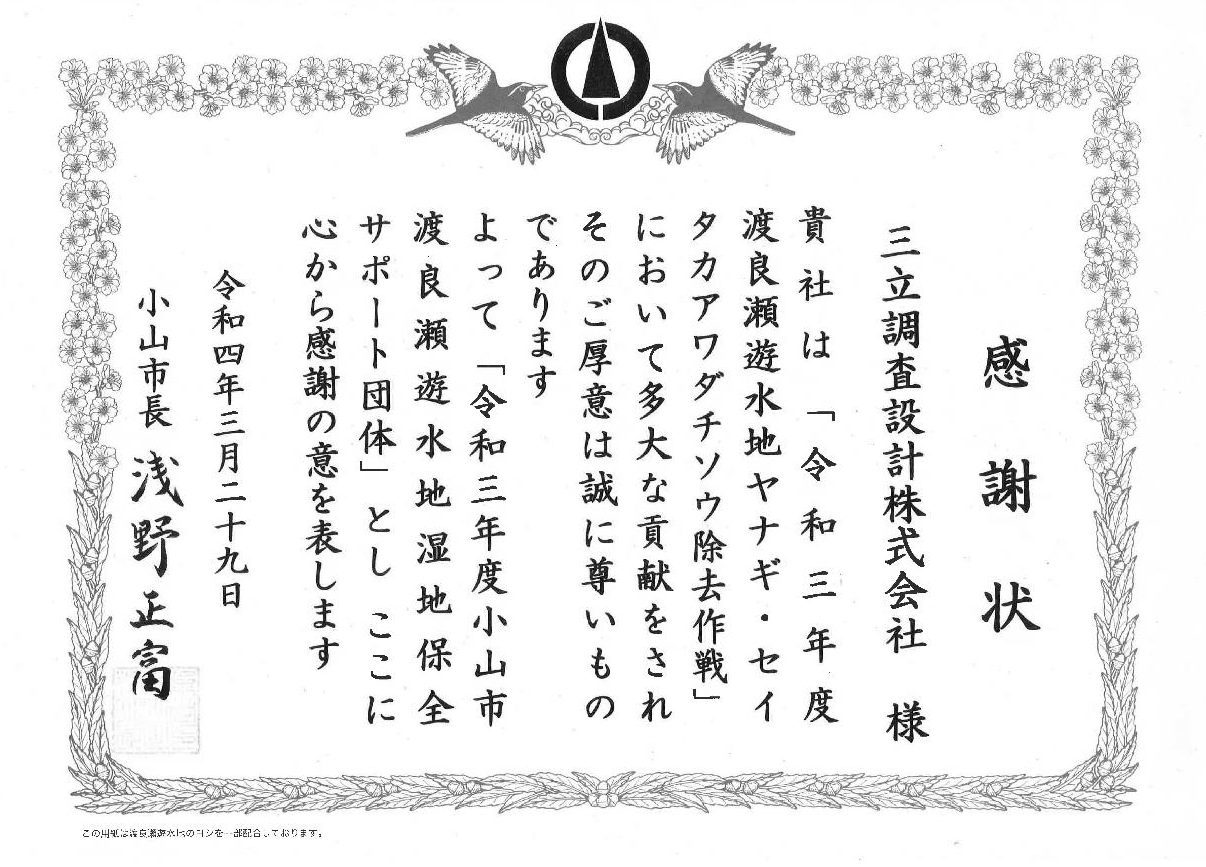 感謝状
三立調査設計株式会社 様
貴社は「令和三年度
渡良瀬遊水地ヤナギ・セイ
タカアワダチソウ除去作戦」
において多大な貢献をされ
そのご厚意は誠に尊いもの
であります
よって「令和三年度小山市
渡良瀬遊水地湿地保全
サポート団体」とし ここに
心から感謝の意を表します
令和四年三月二十九日
小山市長 浅野正富
この用紙は渡良瀬遊水地のヨシを一部配合しております。